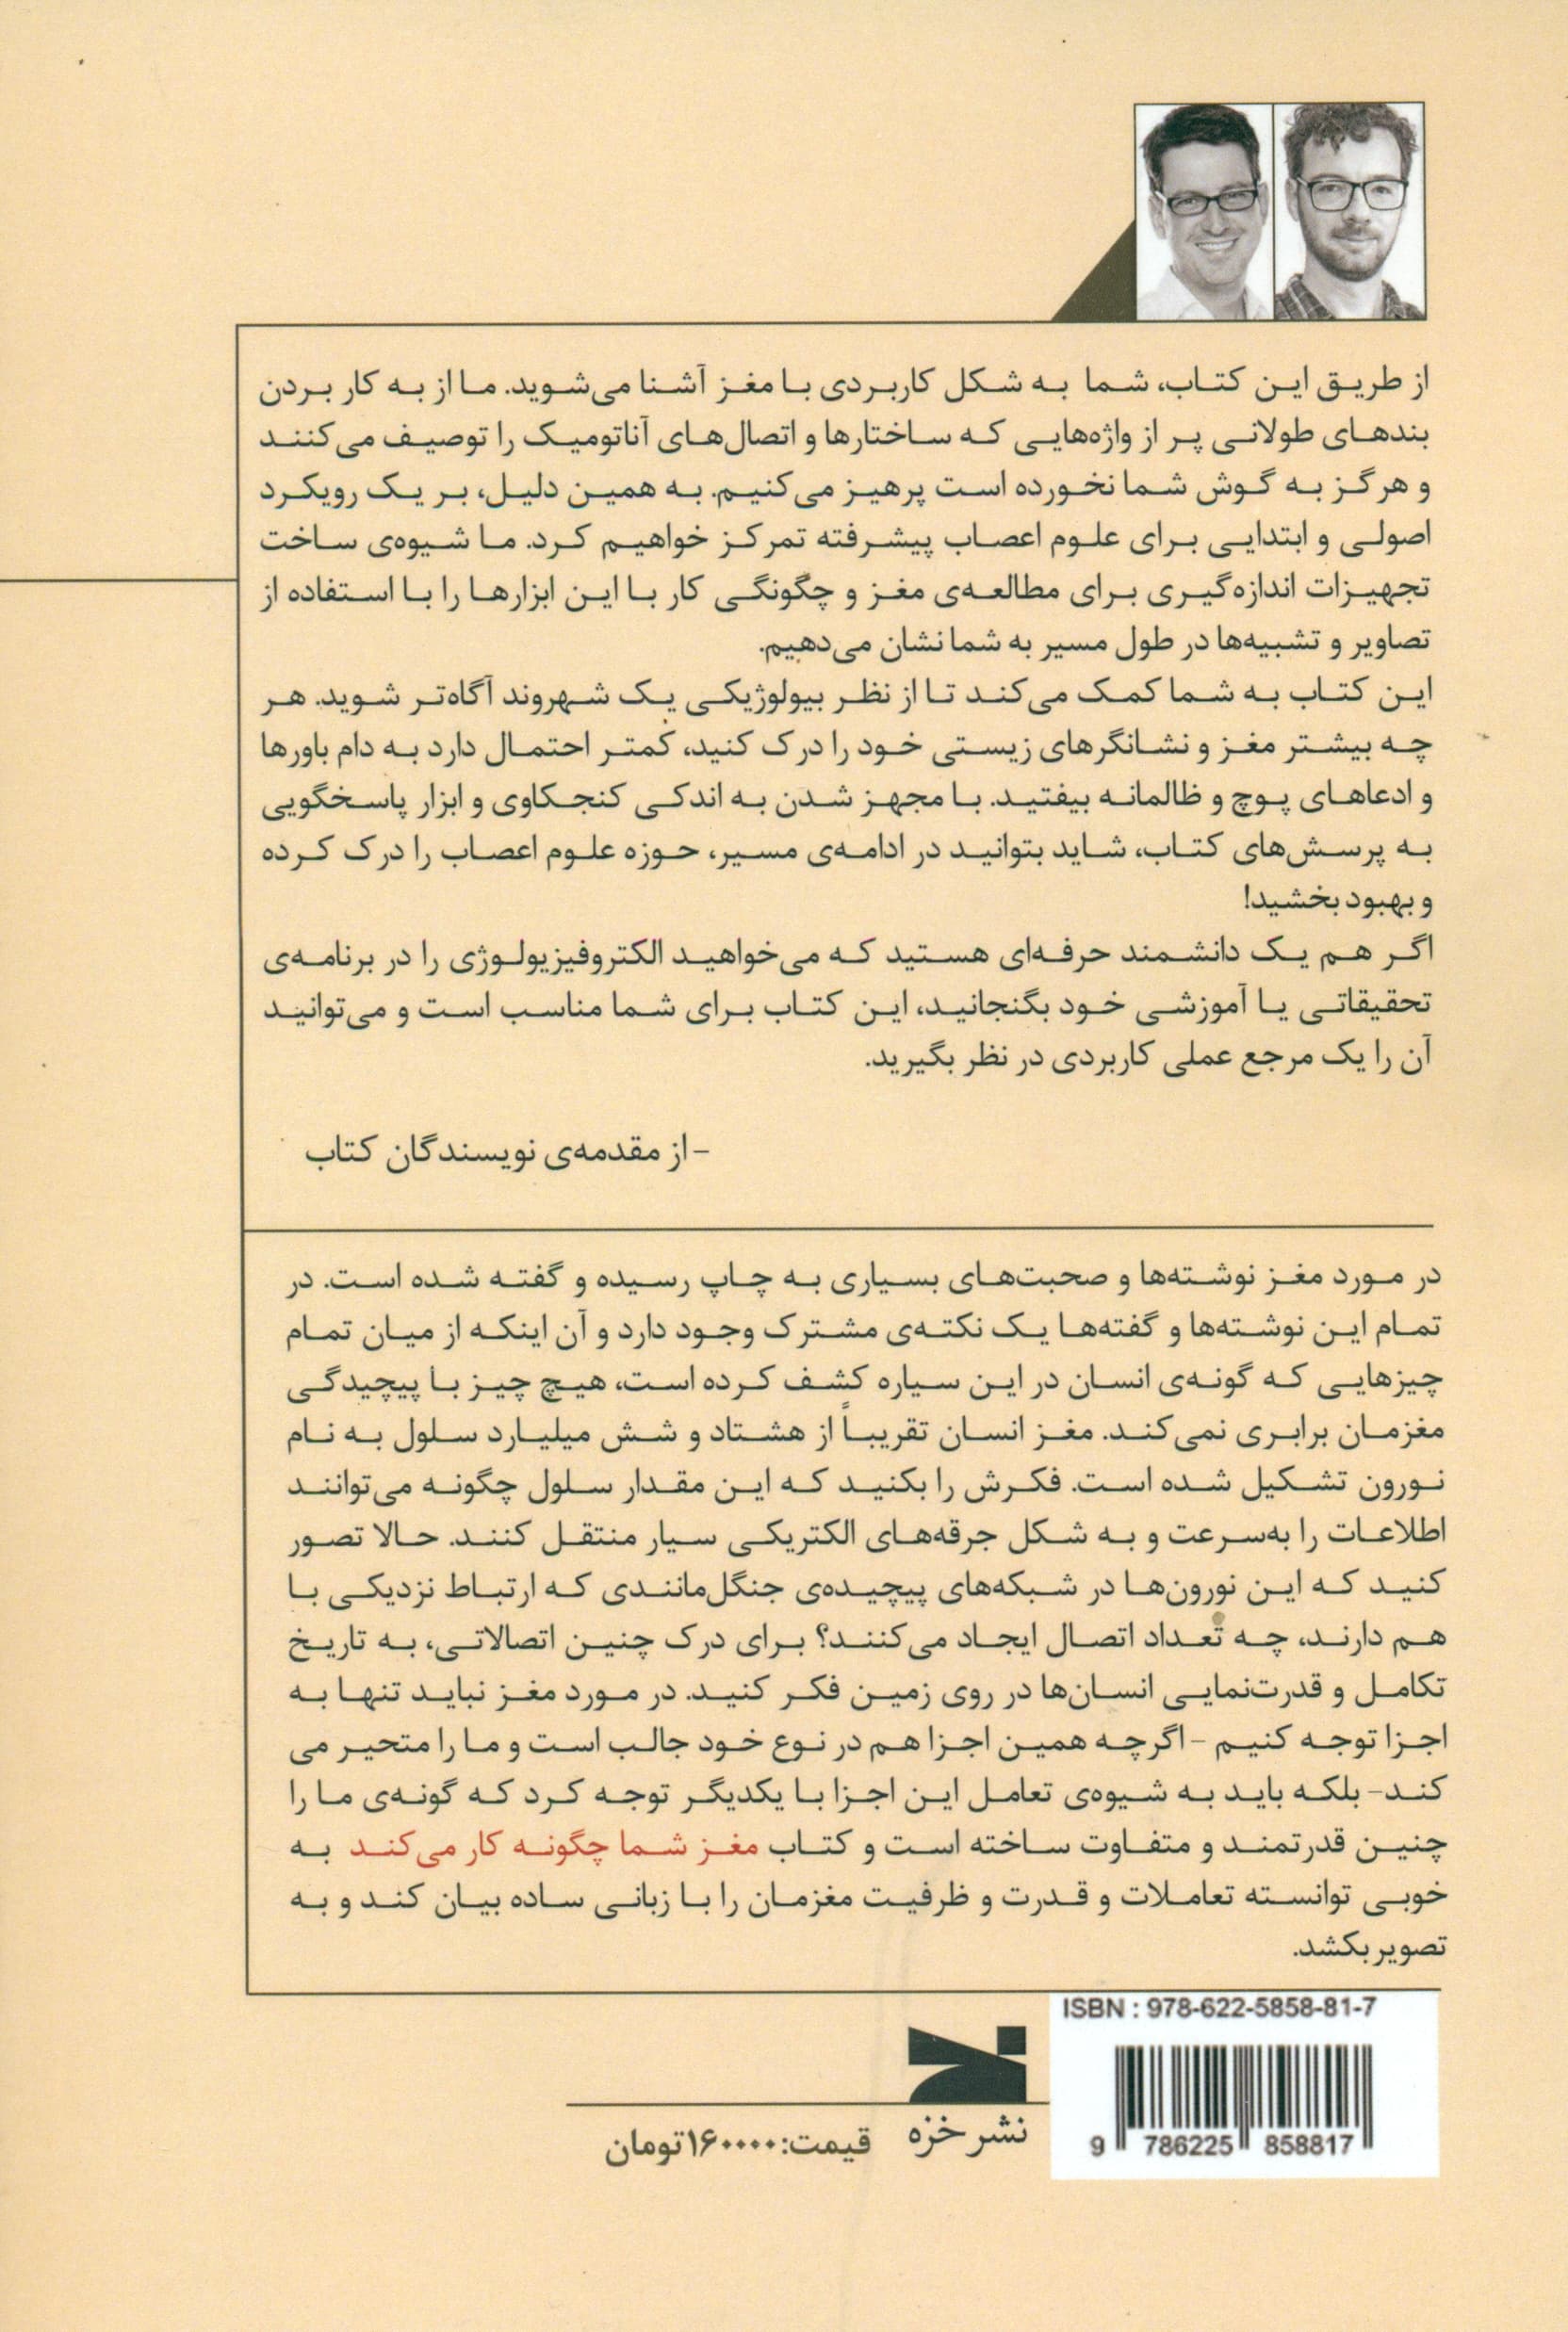 از طریق این کتاب، شما به شکل کاربردی با مغز آشنا می‌شوید. ما از به کار بردن
بندهای طولانی پر از واژه‌هایی که ساختارها و اتصال‌های آناتومیک را توصیف می‌کنند
و هرگز به گوش شما نخورده است پرهیز می‌کنیم. به همین دلیل، بر یک رویکرد
اصولی و ابتدایی برای علوم اعصاب پیشرفته تمرکز خواهیم کرد. ما شیوه‌ی ساخت
تجهیزات اندازه‌گیری برای مطالعه‌ی مغز و چگونگی کار با این ابزارها را با استفاده از
تصاویر و تشبیه‌ها در طول مسیر به شما نشان می‌دهیم.
این کتاب به شما کمک می‌کند تا از نظر بیولوژیکی یک شهروند آگاه‌تر شوید. هر
چه بیشتر مغز و نشانگرهای زیستی خود را درک کنید، کمتر احتمال دارد به دام باورها
و ادعاهای پوچ و ظالمانه بیفتید. با مجهز شدن به اندکی کنجکاوی و ابزار پاسخگویی
به پرسش‌های کتاب، شاید بتوانید در ادامه‌ی مسیر، حوزه علوم اعصاب را درک کرده
و بهبود بخشید!
اگر هم یک دانشمند حرفه‌ای هستید که می‌خواهید الکتروفیزیولوژی را در برنامه‌ی
تحقیقاتی یا آموزشی خود بگنجانید، این کتاب برای شما مناسب است و می‌توانید
آن را یک مرجع عملی کاربردی در نظر بگیرید.
- از مقدمه‌ی نویسندگان کتاب
در مورد مغز نوشته‌ها و صحبت‌های بسیاری به چاپ رسیده و گفته شده است. در
تمام این نوشته‌ها و گفته‌ها یک نکته‌ی مشترک وجود دارد و آن اینکه از میان تمام
چیزهایی که گونه‌ی انسان در این سیاره کشف کرده است، هیچ چیز با پیچیدگی
مغزمان برابری نمی‌کند. مغز انسان تقریباً از هشتاد و شش میلیارد سلول به نام
نورون تشکیل شده است. فکرش را بکنید که این مقدار سلول چگونه می‌توانند
اطلاعات را به‌سرعت و به شکل جرقه‌های الکتریکی سیار منتقل کنند. حالا تصور
کنید که این نورون‌ها در شبکه‌های پیچیده‌ی جنگل‌مانندی که ارتباط نزدیکی با
هم دارند، چه تعداد اتصال ایجاد می‌کنند؟ برای درک چنین اتصالاتی، به تاریخ
تکامل و قدرت‌نمایی انسان‌ها در روی زمین فکر کنید. در مورد مغز نباید تنها به
اجزا توجه کنیم -اگرچه همین اجزا هم در نوع خود جالب است و ما را متحیر می
کند- بلکه باید به شیوه‌ی تعامل این اجزا با یکدیگر توجه کرد که گونه‌ی ما را
چنین قدرتمند و متفاوت ساخته است و کتاب مغز شما چگونه کار می‌کند به
خوبی توانسته تعاملات و قدرت و ظرفیت مغزمان را با زبانی ساده بیان کند و به
تصویر بکشد.
ISBN : 978-622-5858-81-7
9 786225 858817
نشر خزه
قیمت: ۱۶۰۰۰۰ تومان